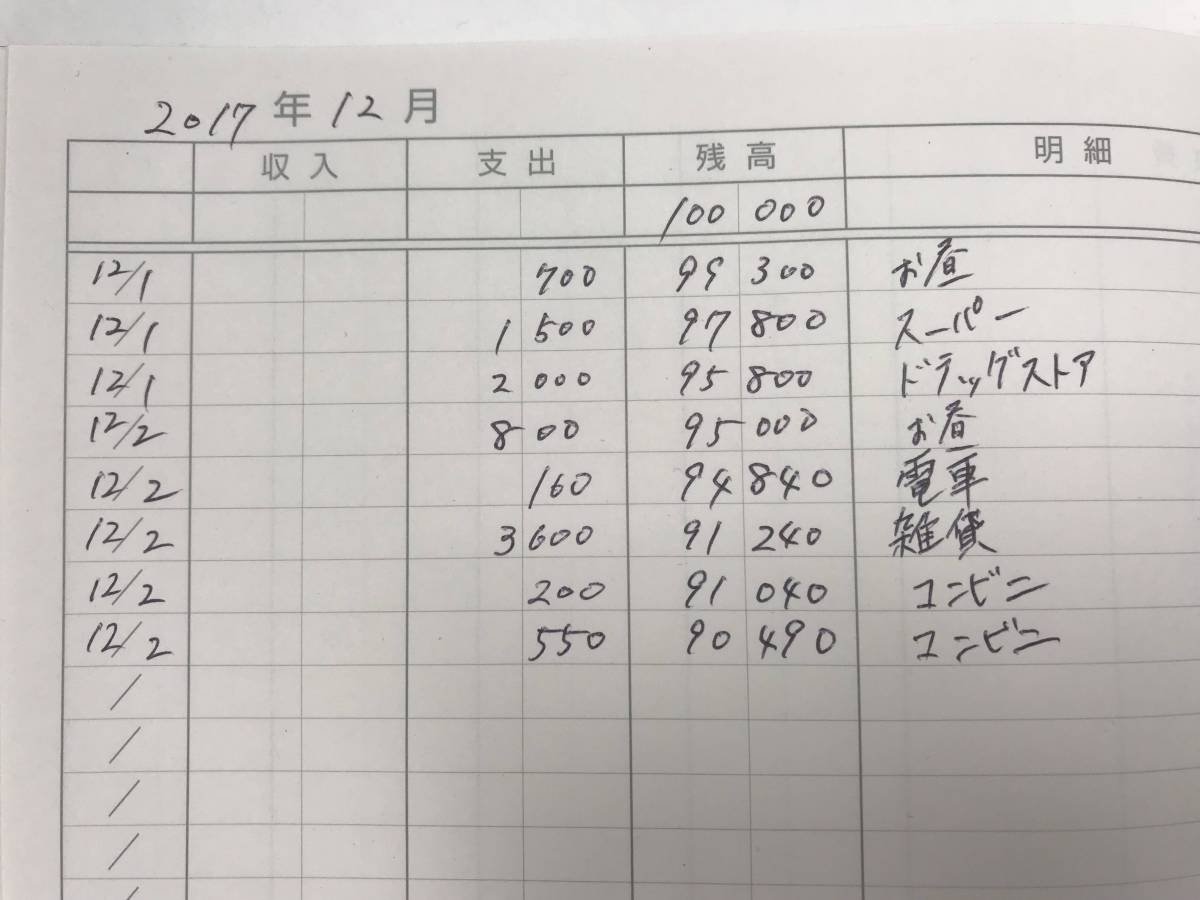 2017年12月
収入 支出 残高 明細
100 000
12/1 700 99 300 お昼
12/1 1 500 97 800 スーパー
12/1 2 000 95 800 ドラッグストア
12/2 8 00 95 000 お昼
12/2 160 94 840 電車
12/2 3 600 91 240 雑貨
12/2 200 91 040 コンビニ
12/2 550 90 490 コンビニ
/
/
/
/